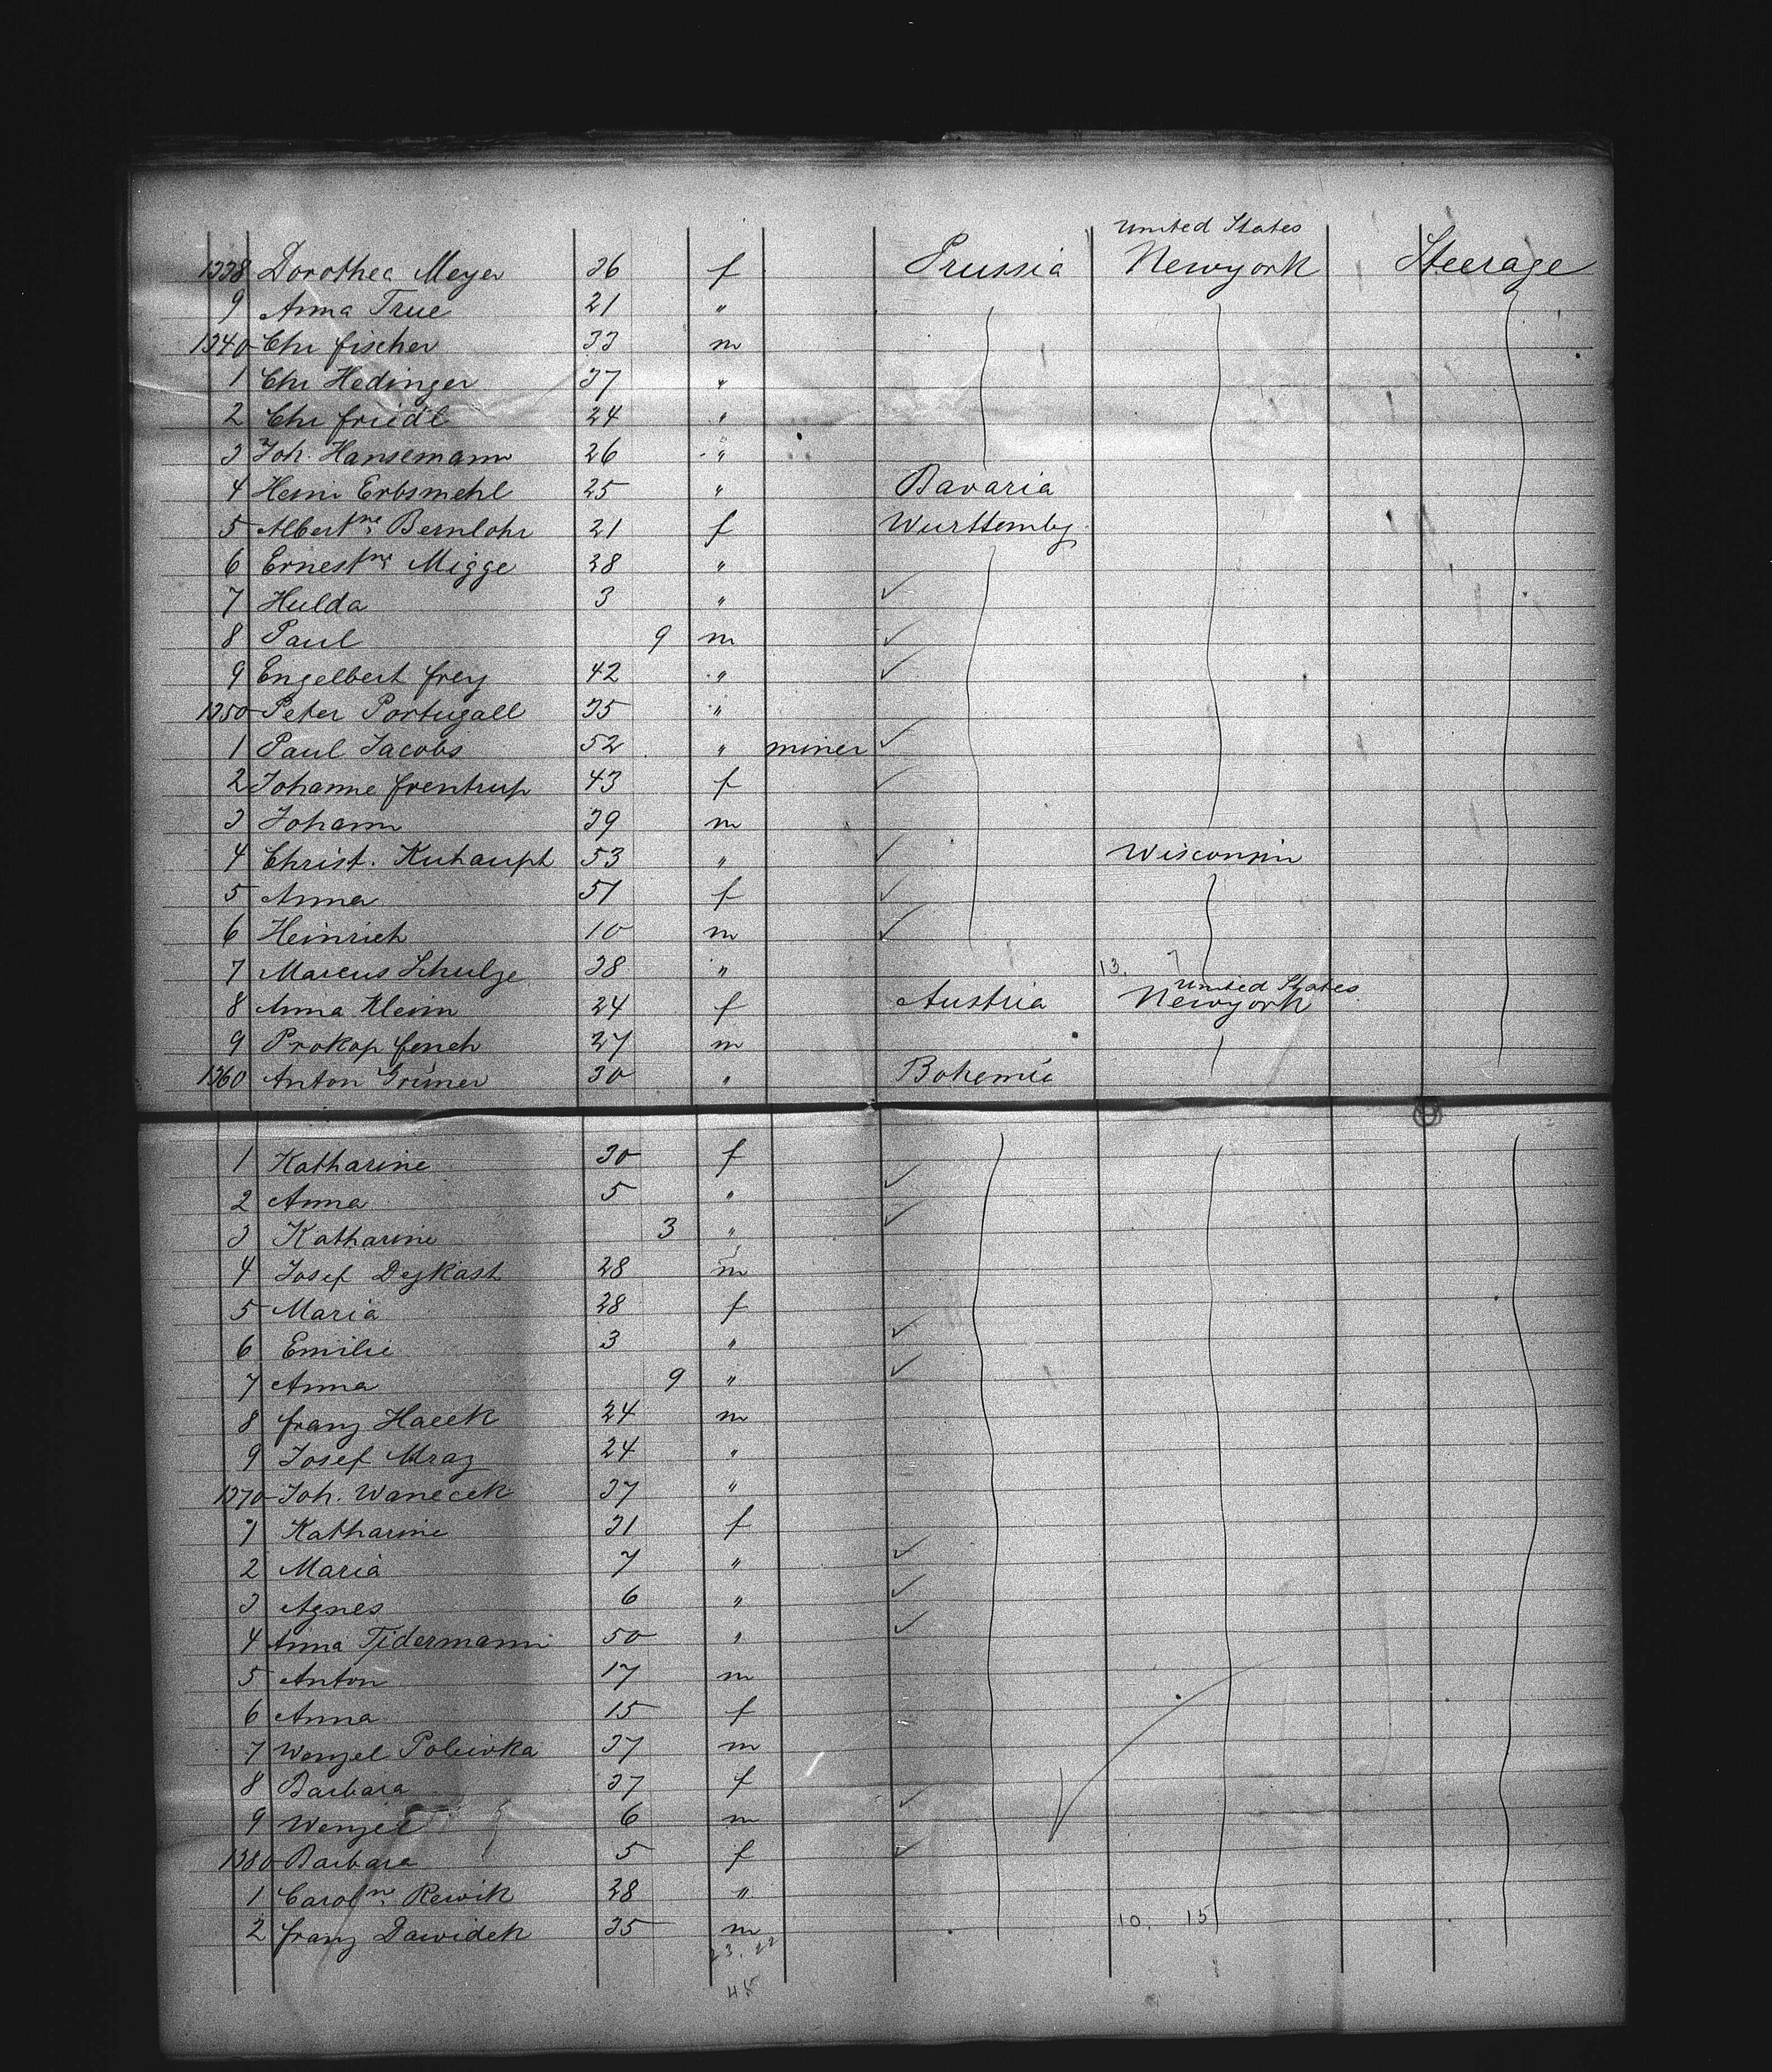 United States
1338 Dorothea Meyer 36 f Prussia Newyork Steerage
9 Anna True 21 "
1340 Chr Fischer 33 m
1 Chr Hedinger 37 "
2 Chr Friedl 24 "
3 Joh. Hansemann 26 "
4 Heinr Erbsmehl 25 " Bavaria
5 Albertne Bernlohr 21 f Wurttembg.
6 Ernestne Migge 28 "
7 Hulda 3 " ✓
8 Paul 9 m ✓
9 Engelbert Frey 42 " ✓
1350 Peter Portugall 35 "
1 Paul Jacobs 52 " miner ✓
2 Johanne Frentrup 43 f ✓
3 Johann 39 m
4 Christ. Kuhaupt 53 " ✓ Wisconsin
5 Anna 51 f ✓
6 Heinrich 10 m ✓
7 Marcus Schulze 38 " 13. 7
United States
8 Anna Klein 24 f Austria Newyork
9 Prokop Fench 27 m
1360 Anton Grüner 30 " Bohemie
1 Katharine 30 f ✓
2 Anna 5 " ✓
3 Katharine 3 "
4 Josef Dejkast 28 m
5 Maria 28 f ✓
6 Emilie 3 " ✓
7 Anna 9 "
8 Franz Hacek 24 m
9 Josef Mraz 24 "
1370 Joh. Wanecek 37 "
1 Katharine 31 f ✓
2 Maria 7 " ✓
3 Agnes 6 " ✓
4 Anna Tidermann 50 "
5 Anton 17 m
6 Anna 15 f
7 Wenzel Polivka 37 m
8 Barbara 37 f ✓
9 Wenzel 6 m
1380 Barbara 5 f ✓
1 Carolne Rewik 28 "
2 Franz Dawidek 35 m 10. 15
23. 22
45